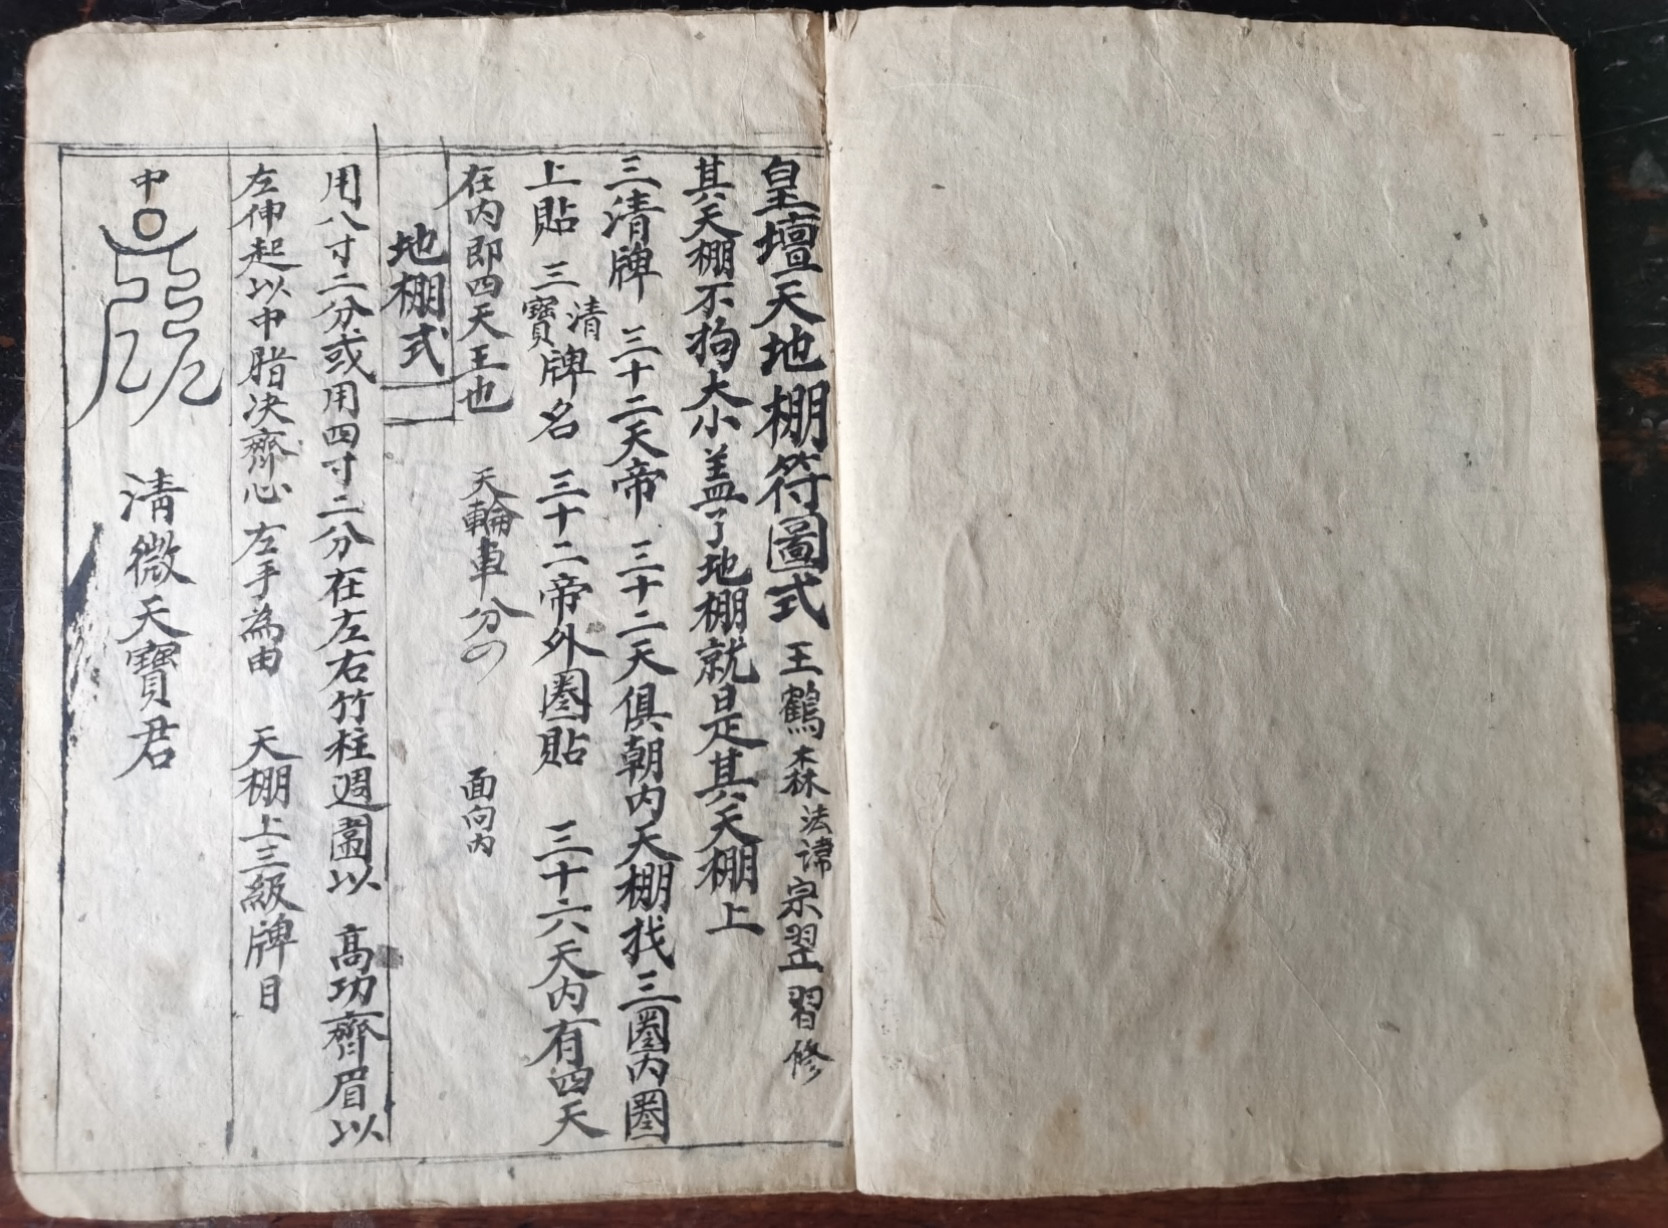 皇壇天地棚符圖式 王鶴森 法諱宗翌習修
其天棚不狗大小盖了地棚就是其天棚上
三清牌 三十二天帝 三十二天俱朝内天棚找三圈内圈
上貼 三清寶牌名 三十二帝外圈貼 三十六天内有四天
在内即四天王也 天輪車分 面向内
地棚式
用八寸二分或用四寸二分在左右竹柱週圍以 高功齊眉以
左伸起以中腊决齊心左手為由 天棚上三級牌目
中 清微天寶君